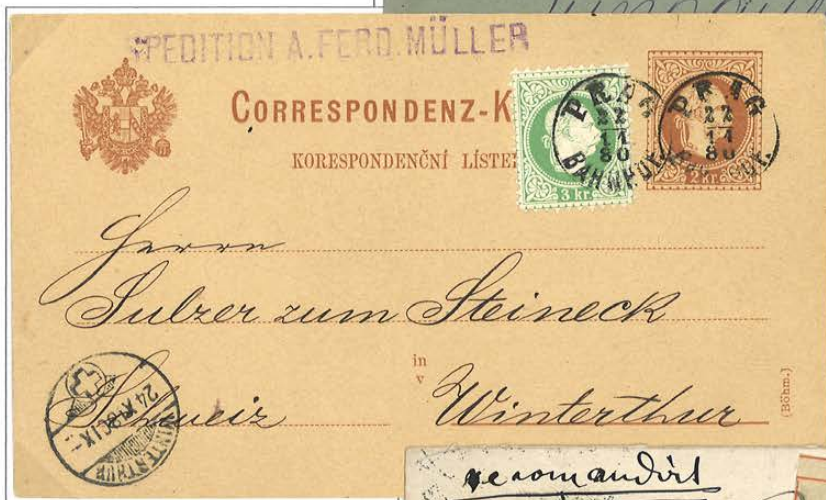 SPEDITION A. FERD. MÜLLER
CORRESPONDENZ-K
KORESPONDENČNÍ LÍSTE
PRAG
22
11
80
BAHNHOF
3 kr.
PRAG
22
11
80
2 kr.
Herrn
Sulzer zum Steineck
in
v
Schweiz Winterthur
(Böhm.)
WINTERTHUR
24 XI 80 IX
recomandirt